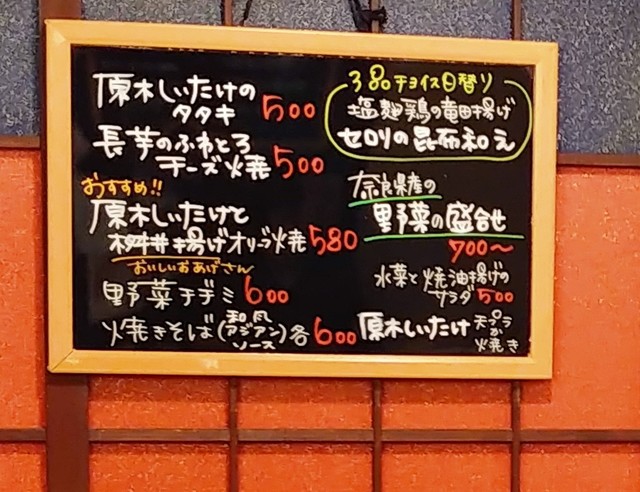 原木しいたけの
タタキ 500
長芋のふわとろ
チーズ焼 500
おすすめ!!
原木しいたけと
揚げオリーブ焼 580
おいしいおあげさん
野菜チヂミ 600
焼きそば(和風
アジアン
ソース)各600
3品チョイス日替り
塩麹鶏の竜田揚げ
セロリの昆布和え
奈良県産の
野菜の盛合せ
700〜
水菜と焼油揚げの
サラダ 500
原木しいたけ 天プラ
か
焼き